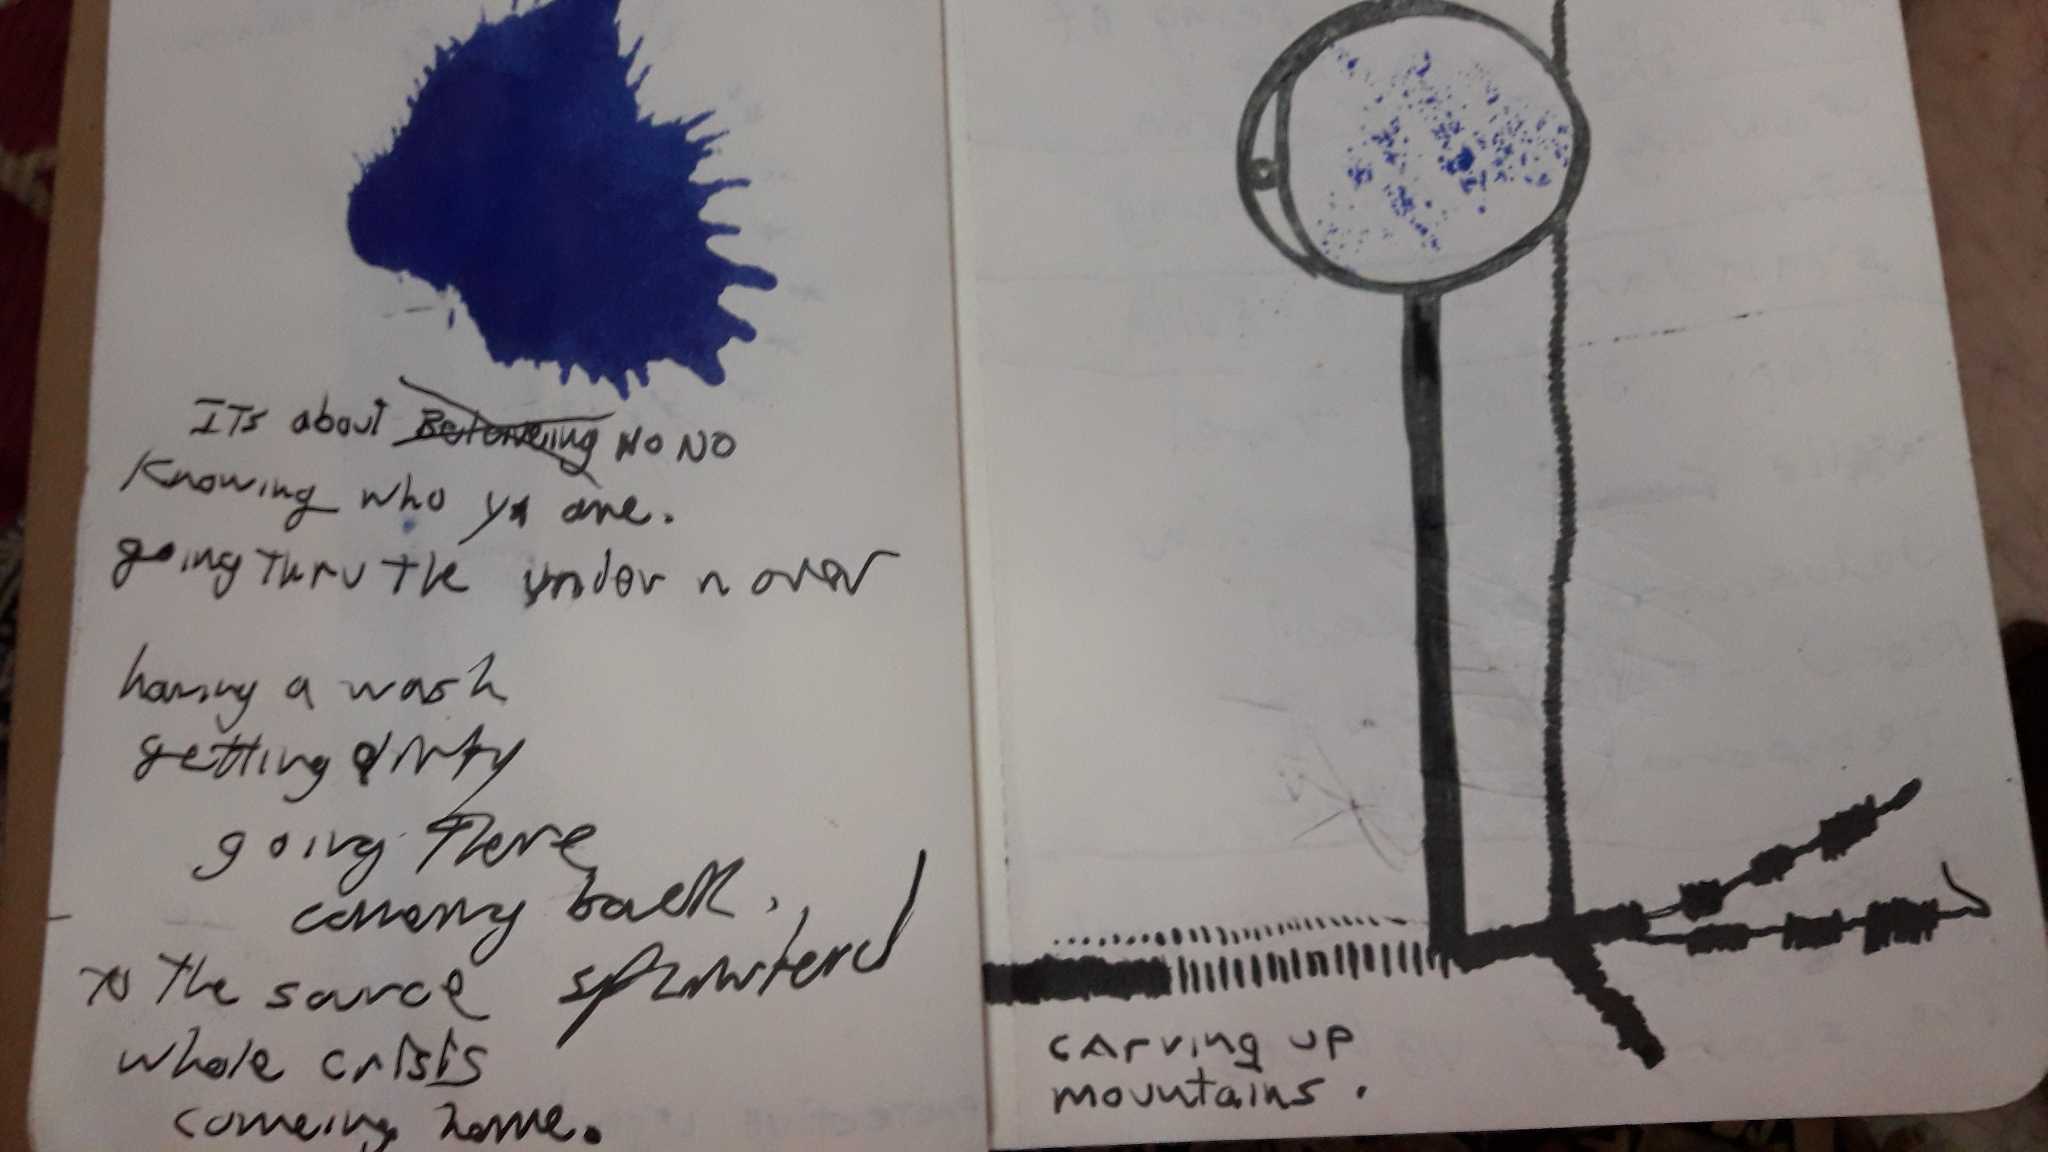 ITs about Believeing NO NO
Knowing who you are.
going Thru the under n over
having a wash
getting dirty
going There
comeing back.
to The source splintered
whole crisis
comeing home.
carving up
mountains.